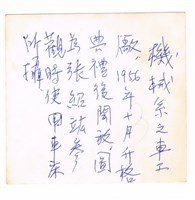 機械系之車工
廠1956年十月升格
典禮後開放圖
為張紹參
觀時使用車床
所攝